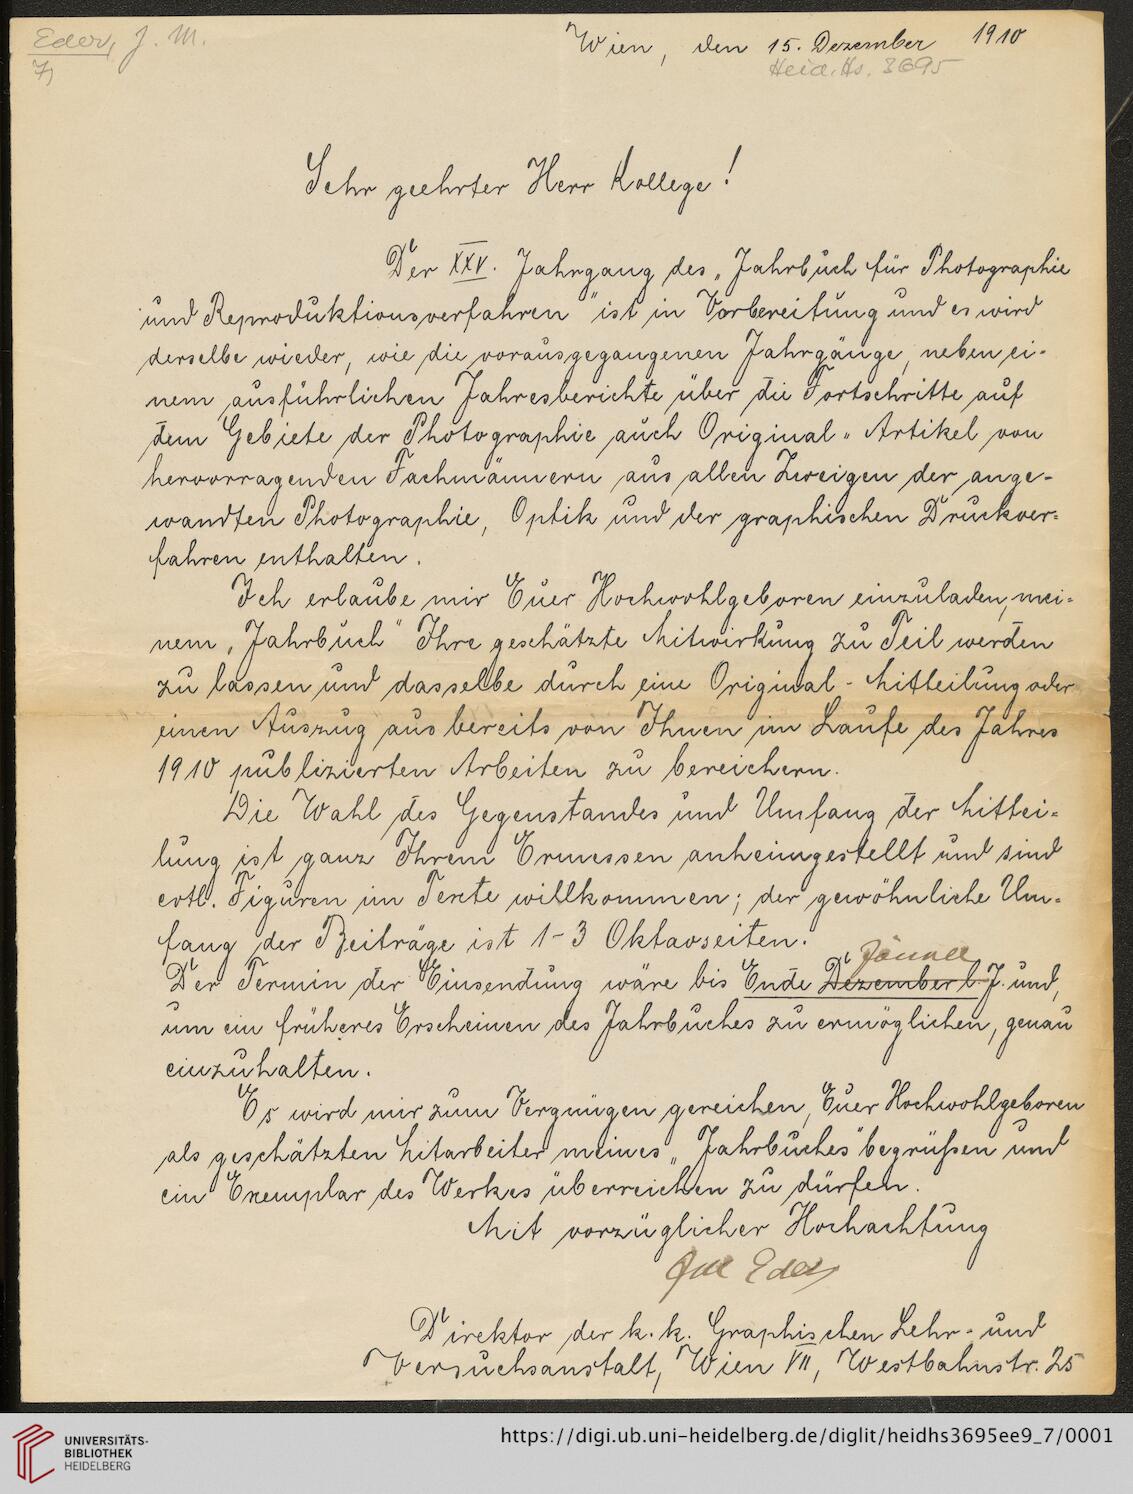 Eder, J. M.
7)
Wien, den 15. Dezember 1910
Heid. Hs. 3695
Sehr geehrter Herr Kollege!
Der XXV. Jahrgang des „Jahrbuch für Photographie
und Reproduktionsverfahren“ ist in Vorbereitung und es wird
derselbe wieder, wie die vorausgegangenen Jahrgänge, neben ei-
nem ausführlichen Jahresberichte über die Fortschritte auf
dem Gebiete der Photographie auch Original-Artikel von
hervorragenden Fachmännern aus allen Zweigen der ange-
wandten Photographie, Optik und der graphischen Druckver-
fahren enthalten.
Ich erlaube mir Euer Hochwohlgeboren einzuladen, mei-
nem „Jahrbuch“ Ihre geschätzte Mitwirkung zu Teil werden
zu lassen und dasselbe durch eine Original-Mitteilung oder
einen Auszug aus bereits von Ihnen im Laufe des Jahres
1910 publizierten Arbeiten zu bereichern.
Die Wahl des Gegenstandes und Umfang der Mittei-
lung ist ganz Ihrem Ermessen anheimgestellt und sind
evtl. Figuren im Texte willkommen; der gewöhnliche Um-
fang der Beiträge ist 1-3 Oktavseiten.
Jänner
Der Termin der Einsendung wäre bis Ende Dezember l. J. und,
um ein früheres Erscheinen des Jahrbuches zu ermöglichen, genau
einzuhalten.
Es wird mir zum Vergnügen gereichen, Euer Hochwohlgeboren
als geschätzten Mitarbeiter meines „Jahrbuches“ begrüßen und
ein Exemplar des Werkes überreichen zu dürfen.
Mit vorzüglicher Hochachtung
Eder
Direktor der k. k. Graphischen Lehr- und
Versuchsanstalt, Wien VII, Westbahnstr. 25
UNIVERSITÄTS-
BIBLIOTHEK
HEIDELBERG
https://digi.ub.uni-heidelberg.de/diglit/heidhs3695ee9_7/0001